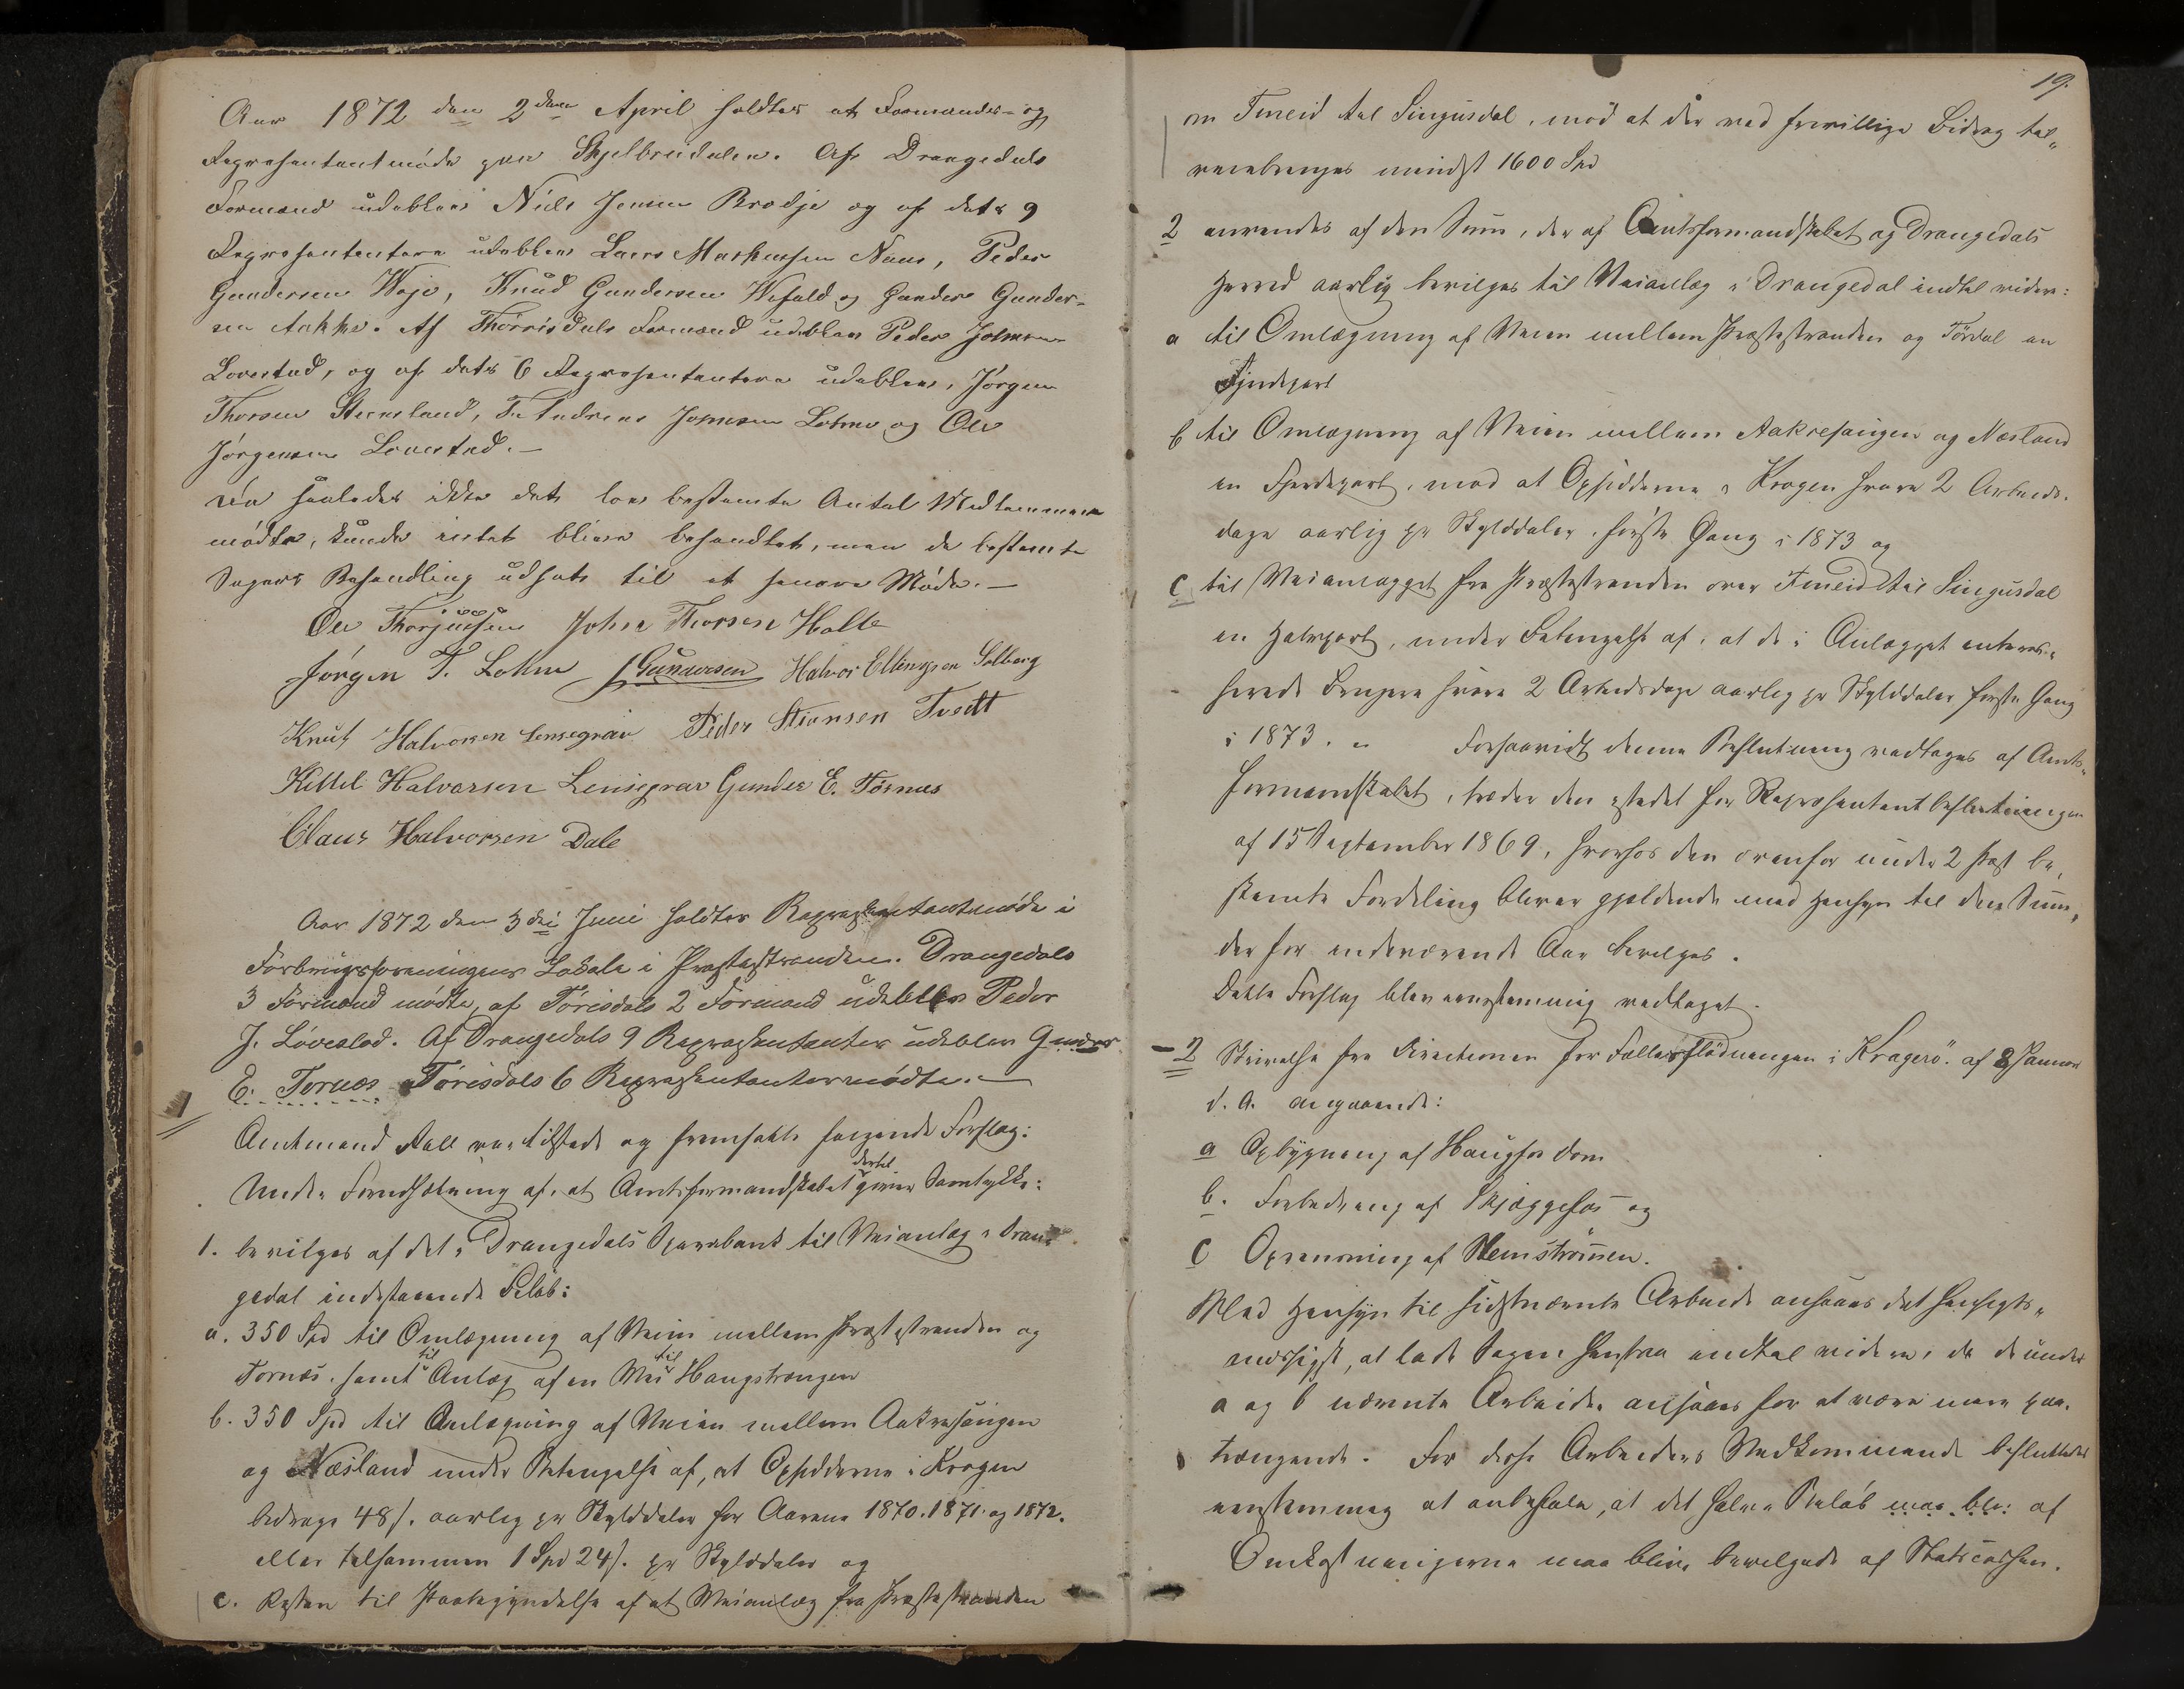 Aar 1872 den 2den April holdtes et Formands- og
Repræsentantmøde paa Skjelbreidalen. Af Drangedals
Formænd udeblev Niels Jensen Brødsjø og af dets 9
Repræsentantere udeblev Lars Markussen Naas, Peder
Gundersen Voje, Knud Gundersen Wefald og Gunder Gunder-
sen Aakre. Af Thørrisdals Formænd udeblev Peder Johnsen
Lovestad, og af dets 6 Repræsentantere udeblev, Jørgen
Thorsen Steensland, Andreas Johnsen Lohne og Ole
Jørgensen Lovestad. –
Da saaledes ikke det lovbestemte Antal Medlemmer
mødte, kunde intet blive behandlet, men de bestemte
Sagers Behandling udsat til et senere Møde. –
Ole Thorjussen John Thorsen Holte
Jørgen T. Lohne J Gundersen Halvor Ellingsen Solberg
Knut Halvorsen Lensegrav Peder Stiansen Tvedt
Kittil Halvorsen Lensegrav Gunder E. Tørnes
Claus Halvorsen Dale
Aar 1872 den 3die Juni holdtes Repræsentantmøde i
Forbrugsforeningens Lokale i Prestestranden. Drangedals
3 Formænd mødte, af Tørisdals 2 Formænd udeblev Peder
J. Løvestad. Af Drangedals 9 Repræsentanter udeblev Gunder
E. Tornes Tørisdals 6 Repræsentanter mødte. –
1
Amtmand Aall var tilstede og fremsatte følgende Forslag:
Under Forudsætning af, at Amtsformandskabet dertil giver Samtykke:
1. bevilges af det i Drangedals Sparebank til Veianlæg i Dran-
gedal indestaaende Beløb:
a. 350 Spd til Omlægning af Veien mellem Præstestranden og
Tornæs, samt til Anlæg af en Vei til Haugstrangen
b. 350 Spd til Omlægning af Veien mellem Aakrefaingen
og Næsland under Betingelse af, at Opsidderne i Krogen
bidrage 48 s. aarlig pr Skylddaler for Aarene 1870. 1871. og 1872.
eller tilsammen 1 Spd 24 s. pr Skylddaler og
c. Resten til Paabegyndelse af et Veianlæg fra Præstestranden
19.
om Tmeid til Singusdal, mod at der ved frivillige Bidrag til-
veiebringes mindst 1600 Spd
2 anvendes af den Sum, der af Amtsformandskabet og Drangedals
Herred aarlig bevilges til Veianlæg i Drangedal indtil videre:
a til Omlægning af Veien mellem Præstestranden og Tørdal en
Fjerdepart
b til Omlægning af Veien mellem Aakrefaingen og Næsland
en Fjerdepart, mod at Opsidderne i Krogen svare 2 Arbeids-
dage aarlig pr Skylddaler, første Gang i 1873 og
c til Veianlægget fra Præstestranden over Tmeid til Singusdal
en Halvpart, under Betingelse af, at de i Anlægget interes-
serede Brugere svare 2 Arbeidsdage aarlig pr Skylddaler første Gang
i 1873. " Forsaavidt denne Beslutning vedtages af Amts-
formandskabet, træder den istedet for Repræsentantbeslutningen
af 15 September 1869, hvorhos den ovenfor under 2 Post be-
stemte Fordeling bliver gjældende med Hensyn til den Sum,
der for indeværende Aar bevilges.
Dette Forslag blev eenstemmig vedtaget.
2 Skrivelse fra Direktionen for Fællesflødningen i Kragerø af 8 Januar
d. A. angaaende:
a Opbygning af Haugfos Dam
b. Forbedring af Skjæggefos og
c Oprensning af Stemstrømmen.
Med Hensyn til sidstnævnte Arbeide ansaaes det hensigts-
mæssigst, at lade Sagen henstaa indtil videre, da de under
a og b nævnte Arbeider ansaaes for at være mere paa-
trængende. For disse Arbeiders Vedkommende besluttedes
eenstemmig at anbefale, at det halve Beløb maa bli: af
Omkostningerne maa blive bevilgede af Statscassen.